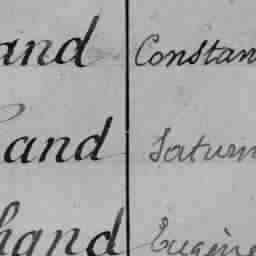 and Constan
and Saturn
hand Eugène